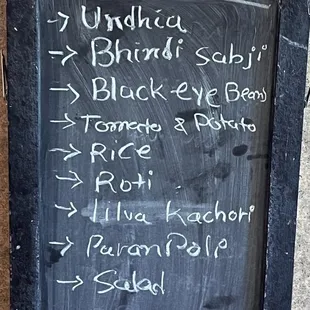 → Undhia
→ Bhindi Sabji
→ Black eye Beans
→ Tomato & Potato
→ Rice
→ Roti
→ Lilva Kachori
→ Puran Poli
→ Salad